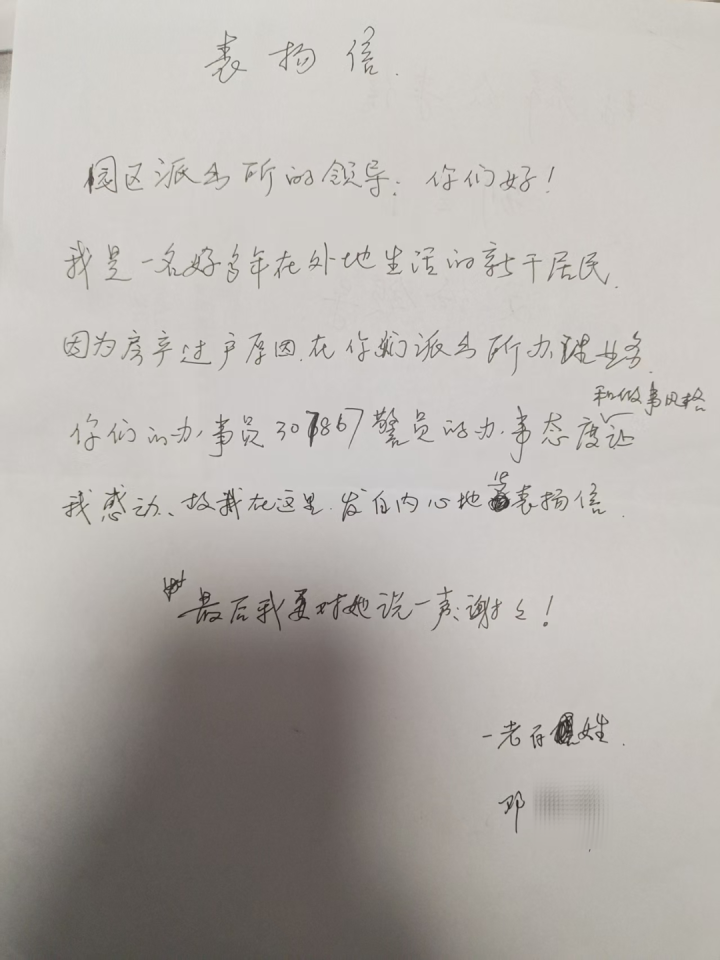 表扬信.
园区派出所的领导:你们好!
我是一名好多年在外地生活的新干居民.
因为房产过户原因.在你们派出所办理业务.
和做事风格
你们的办事员307867警员的办事态度让
我感动、故我在这里.发自内心地写表扬信.
最后我要对她说一声:谢谢!
一老百姓.
邓